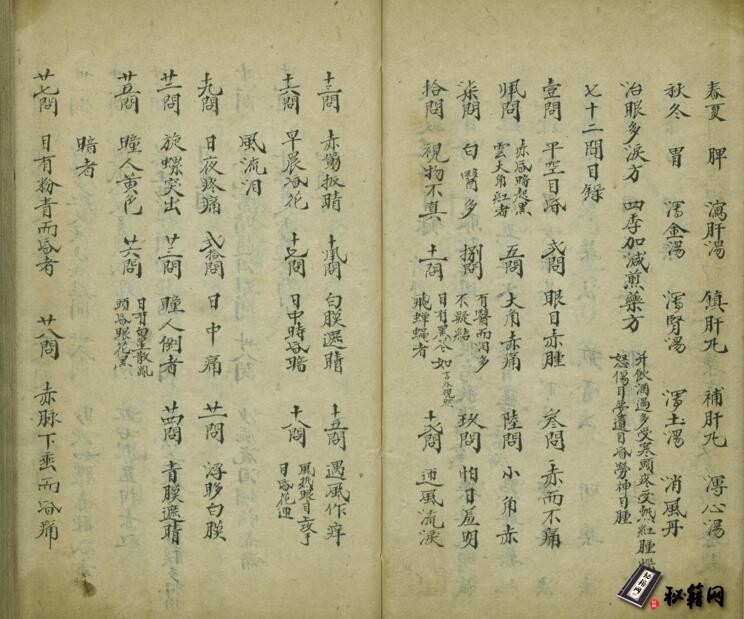 春夏 脾 瀉肝湯 鎮肝丸 補肝丸 瀉心湯
秋冬 胃 瀉金湯 瀉腎湯 瀉土湯 消風丹
治眼多淚方 四季加減煎藥方 并飲酒過多受寒頭疼受熱紅腫
怒傷目夢遺目昏勞神目腫
七十二問目錄
壹問 平空目昏 弍問 眼目赤腫 叁問 赤而不痛
肆問 赤昏暗起黑雲大角紅者 五問 大角赤痛 陸問 小角赤
柒問 白醫多 捌問 有醫而泪多不疑結 玖問 怕日羞明
拾問 視物不真 十一問 目有黑花如飛蟬蠅者 十二問 迎風流淚
十三問 赤努扳睛 十四問 白膜遮睛 十五問 遇風作痒
十六問 早晨昏花 十七問 日中時昏暗 十八問 風熱眼目攻于目昏花迎
風流泪
十九問 日夜疼痛 弍拾問 日中痛 廿一問 浮眵白膜
廿二問 旋螺突出 廿三問 瞳人倒者 廿四問 青膜遮睛
廿五問 瞳人黄色 廿六問 目有白星散亂頭昏眼花黑
暗者
廿七問 目有粉青而昏者 廿八問 赤脉下垂而昏痛
秘籍网